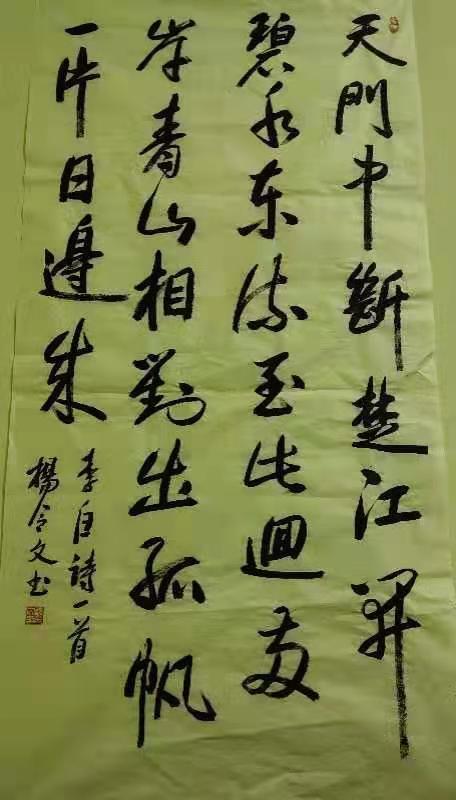 天門中斷楚江開
碧水東流至此迴兩
岸青山相對出孤帆
一片日邊來
李白詩一首
楊令文书